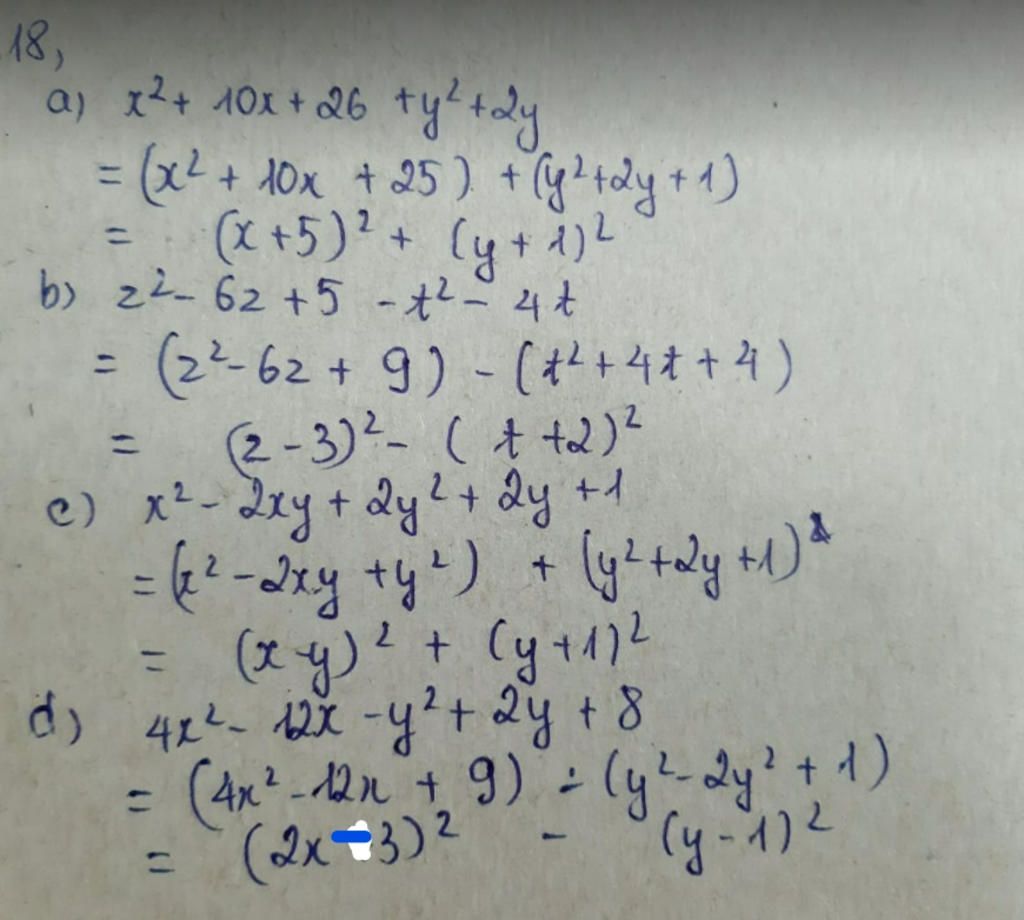 18,
a) x² + 10x + 26 + y² + 2y
= (x² + 10x + 25) + (y² + 2y + 1)
= (x + 5)² + (y + 1)²
b) z² - 6z + 5 - t² - 4t
= (z² - 6z + 9) - (t² + 4t + 4)
= (z - 3)² - (t + 2)²
c) x² - 2xy + 2y² + 2y + 1
= (x² - 2xy + y²) + (y² + 2y + 1)
= (x - y)² + (y + 1)²
d) 4x² - 12x - y² + 2y + 8
= (4x² - 12x + 9) - (y² - 2y² + 1)
= (2x - 3)² - (y - 1)²